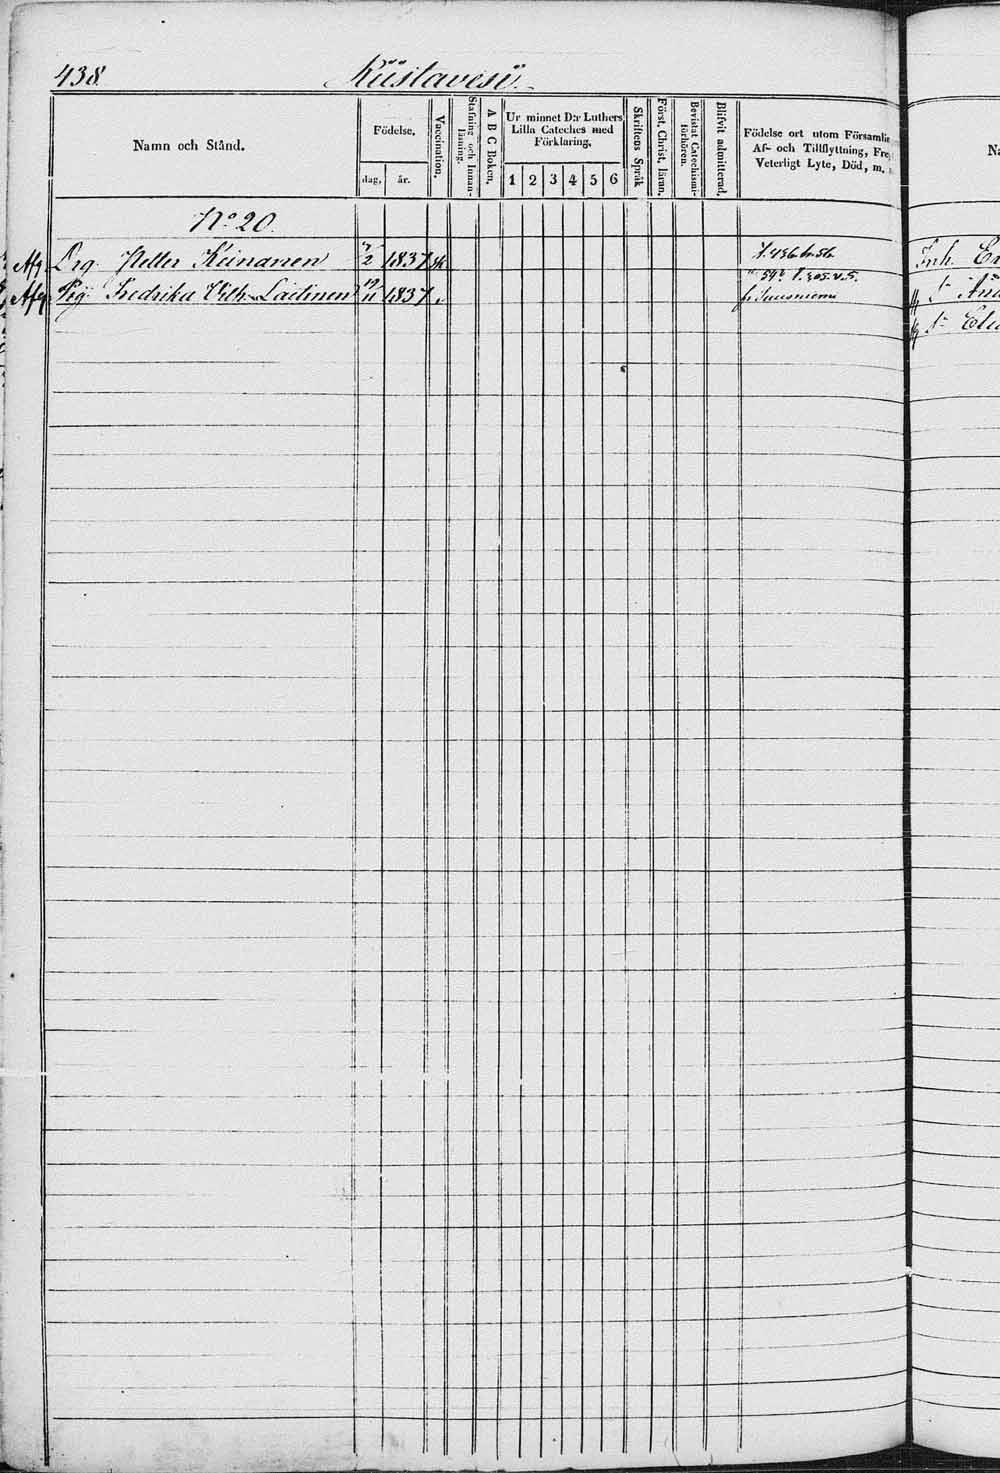 438. Kiislavesi.
Namn och Stånd.
Födelse.
dag, år.
Vaccination.
Stafning och Innanläsning.
A B C Boken.
Ur minnet D:r Luthers
Lilla Cateches med
Förklaring.
1 2 3 4 5 6
Skriftens Språk
Först. Christ. läran.
Bevistat Catechismiförhören.
Blifvit admitterad.
Födelse ort utom
Af- och Tillflyttning,
Veterligt Lyte, Död, m.
No 20.
Drg. Petter Keinanen 7/2 1837
Pig. Fredrika Vilh. Laitinen 19/11 1837
Inh.